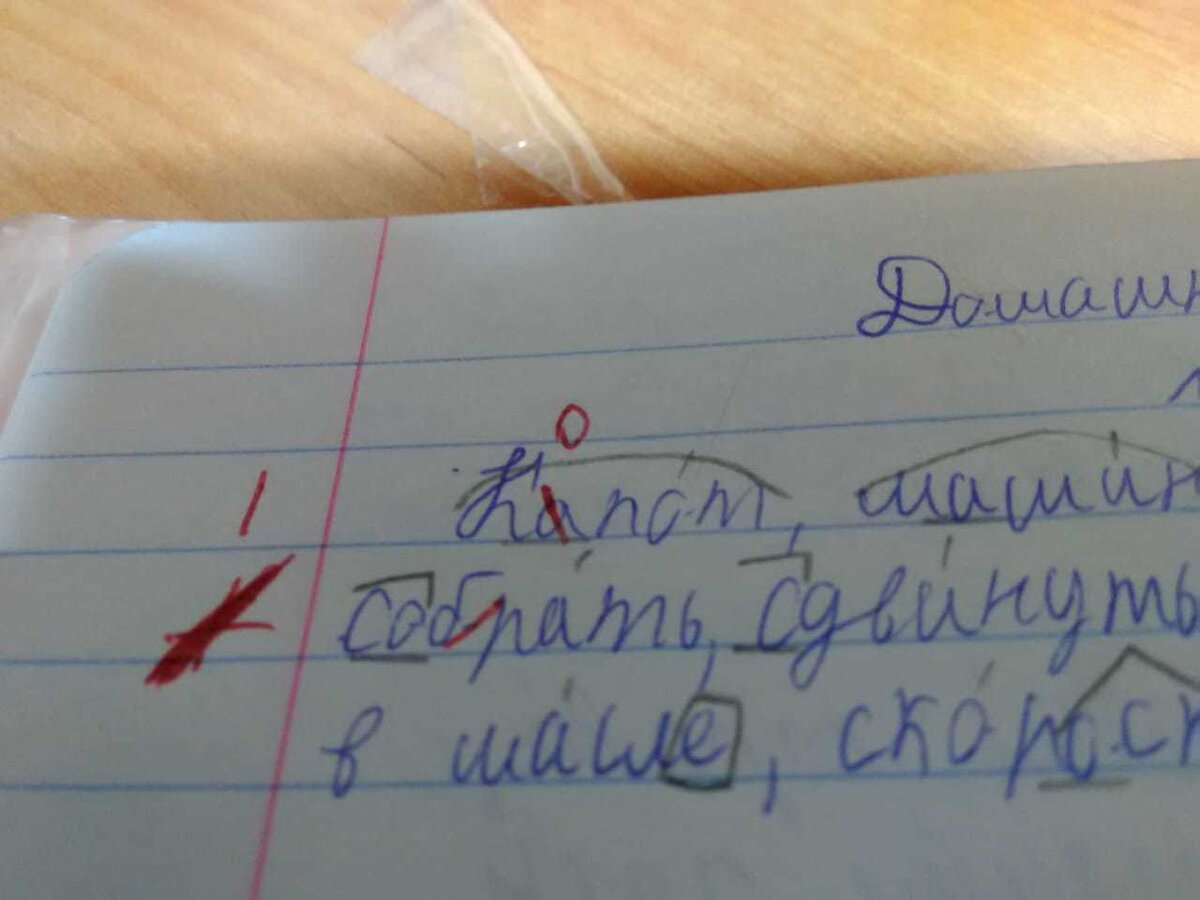 Домашн
Капот, машин
собрать, сдвинуть
в масле, скорос